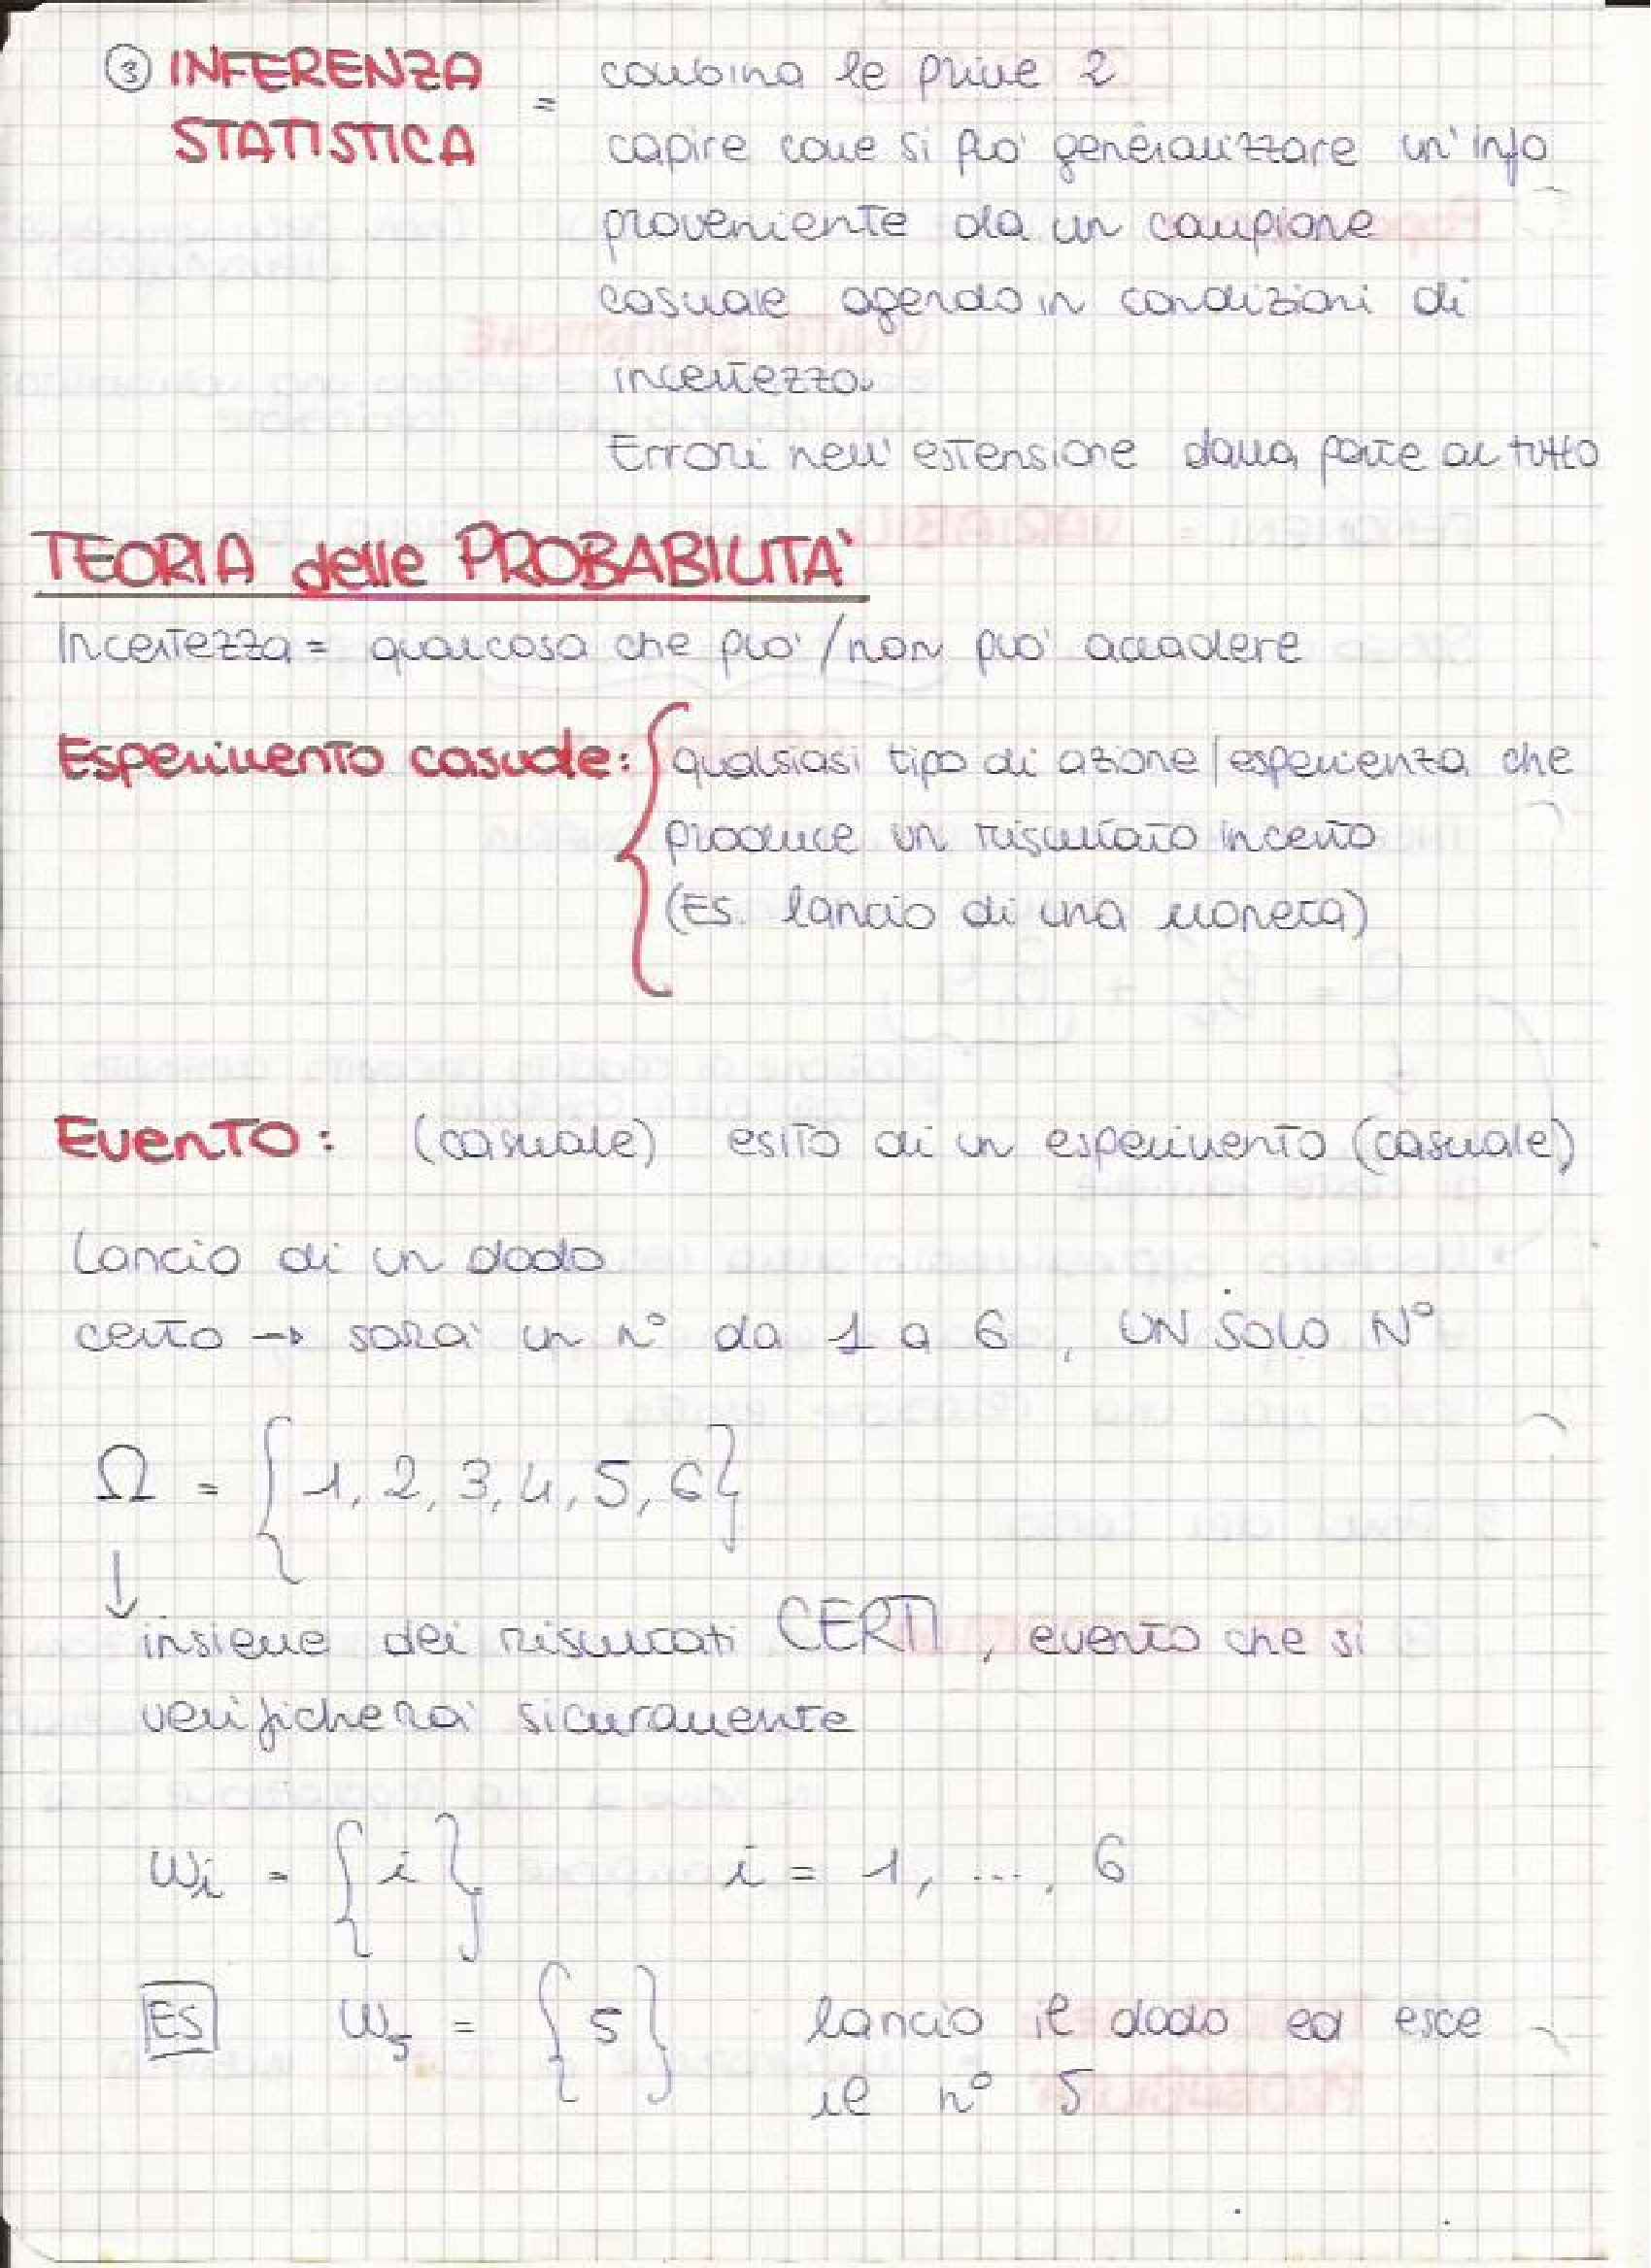 ③ INFERENZA STATISTICA = combina le prime 2
capire come si può generalizzare un'info
proveniente da un campione
casuale agendo in condizioni di
incertezza.
Errori nell'estensione dalla parte al tutto
TEORIA delle PROBABILITA'
Incertezza = qualcosa che può/non può accadere
Esperimento casuale: { qualsiasi tipo di azione/esperienza che
produce un risultato incerto
(Es. lancio di una moneta)
Evento: (casuale) esito di un esperimento (casuale)
Lancio di un dado
certo → sarà un n° da 1 a 6, UN SOLO N°
Ω = {1, 2, 3, 4, 5, 6}
↓
insieme dei risultati CERTI, evento che si
verificherà sicuramente
ωi = {i} i = 1, ..., 6
ES ω5 = {5} lancio il dado ed esce
il n° 5